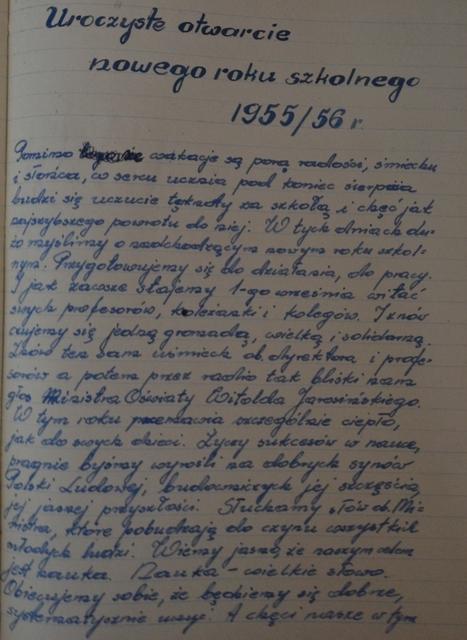 Uroczyste otwarcie
nowego roku szkolnego
1955/56 r
Pomimo wakacje są porą radości, śmiechu
i słońca, w sercu ucznia pod koniec sierpnia
budzi się uczucie tęknoty za szkołą i chęć jak
najszybszego powrotu do niej. W tych dniach du-
żo myślimy o nadchodzącym nowym roku szkol-
nym. Przygotowujemy się do działania, do pracy.
I jak zawsze stajemy 1-go września witać
swych profesorów, koleżanki i kolegów. I znów
czujemy się jedną gromadą, wielką i solidarną.
Znów ten sam uśmiech ob. dyrektora i profe-
sorów a potem przez radio tak bliski nam
głos Ministra Oświaty Witolda Jarosińskiego.
W tym roku przemawia szczególnie ciepło,
jak do swych dzieci. Życzy sukcesów w nauce,
pragnie byśmy wyrośli na dobrych synów
Polski Ludowej, budowniczych jej szczęścia,
jej jasnej przyszłości. Słuchamy słów ob. Mi-
nistra, które pobudzają do czynu wszystkich
młodych ludzi. Wiemy jasno, że naszym celem
jest nauka. Nauka - wielkie słowo.
Obiecujemy sobie, że będziemy się dobrze,
systematycznie uczyć. A chęci nasze w tym